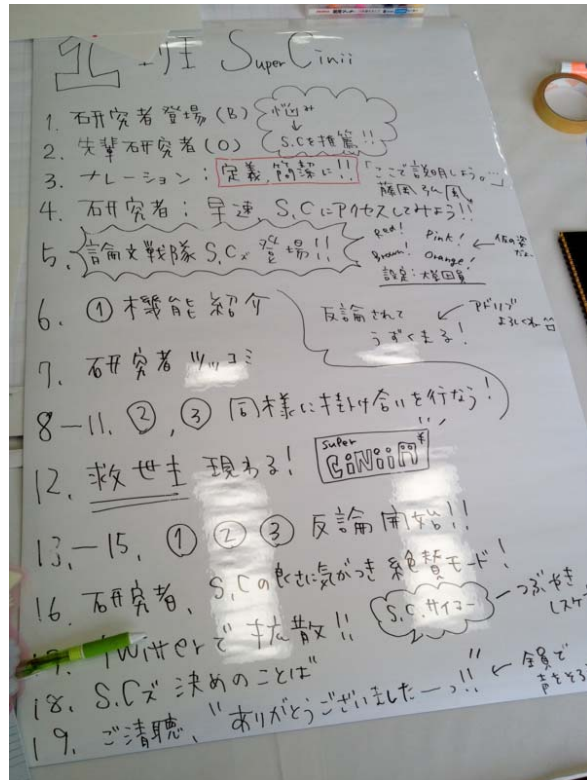 1 班 Super Cinii
1. 研究者登場(B)
悩み
↓
S.Cを推薦!!
2. 先輩研究者(O)
3. ナレーション: 定義、簡潔に!!
「ここで説明しよう。…」
藤岡弘、風
4. 研究者: 早速、S.Cにアクセスしてみよう!!
5. 論文戦隊S.C×登場!!
Red! Pink!
Brown! Orange!
6. ① 機能紹介
反論されて
うずくまる!
← アドリブ
よろしくね
7. 研究者ツッコミ
8-11. ②, ③ 同様に掛け合いを行なう!
12. 救世主 現わる!
Super
CiNii
13.-15. ① ② ③ 反論開始!!
16. 研究者、S.Cの良さに気がつき絶賛モード!
S.C.サイコー
つぶやき
17. Twitterで拡散!!
18. S.Cズ 決めのことば
19. ご清聴、"ありがとうございましたーっ!!"
← 全員で